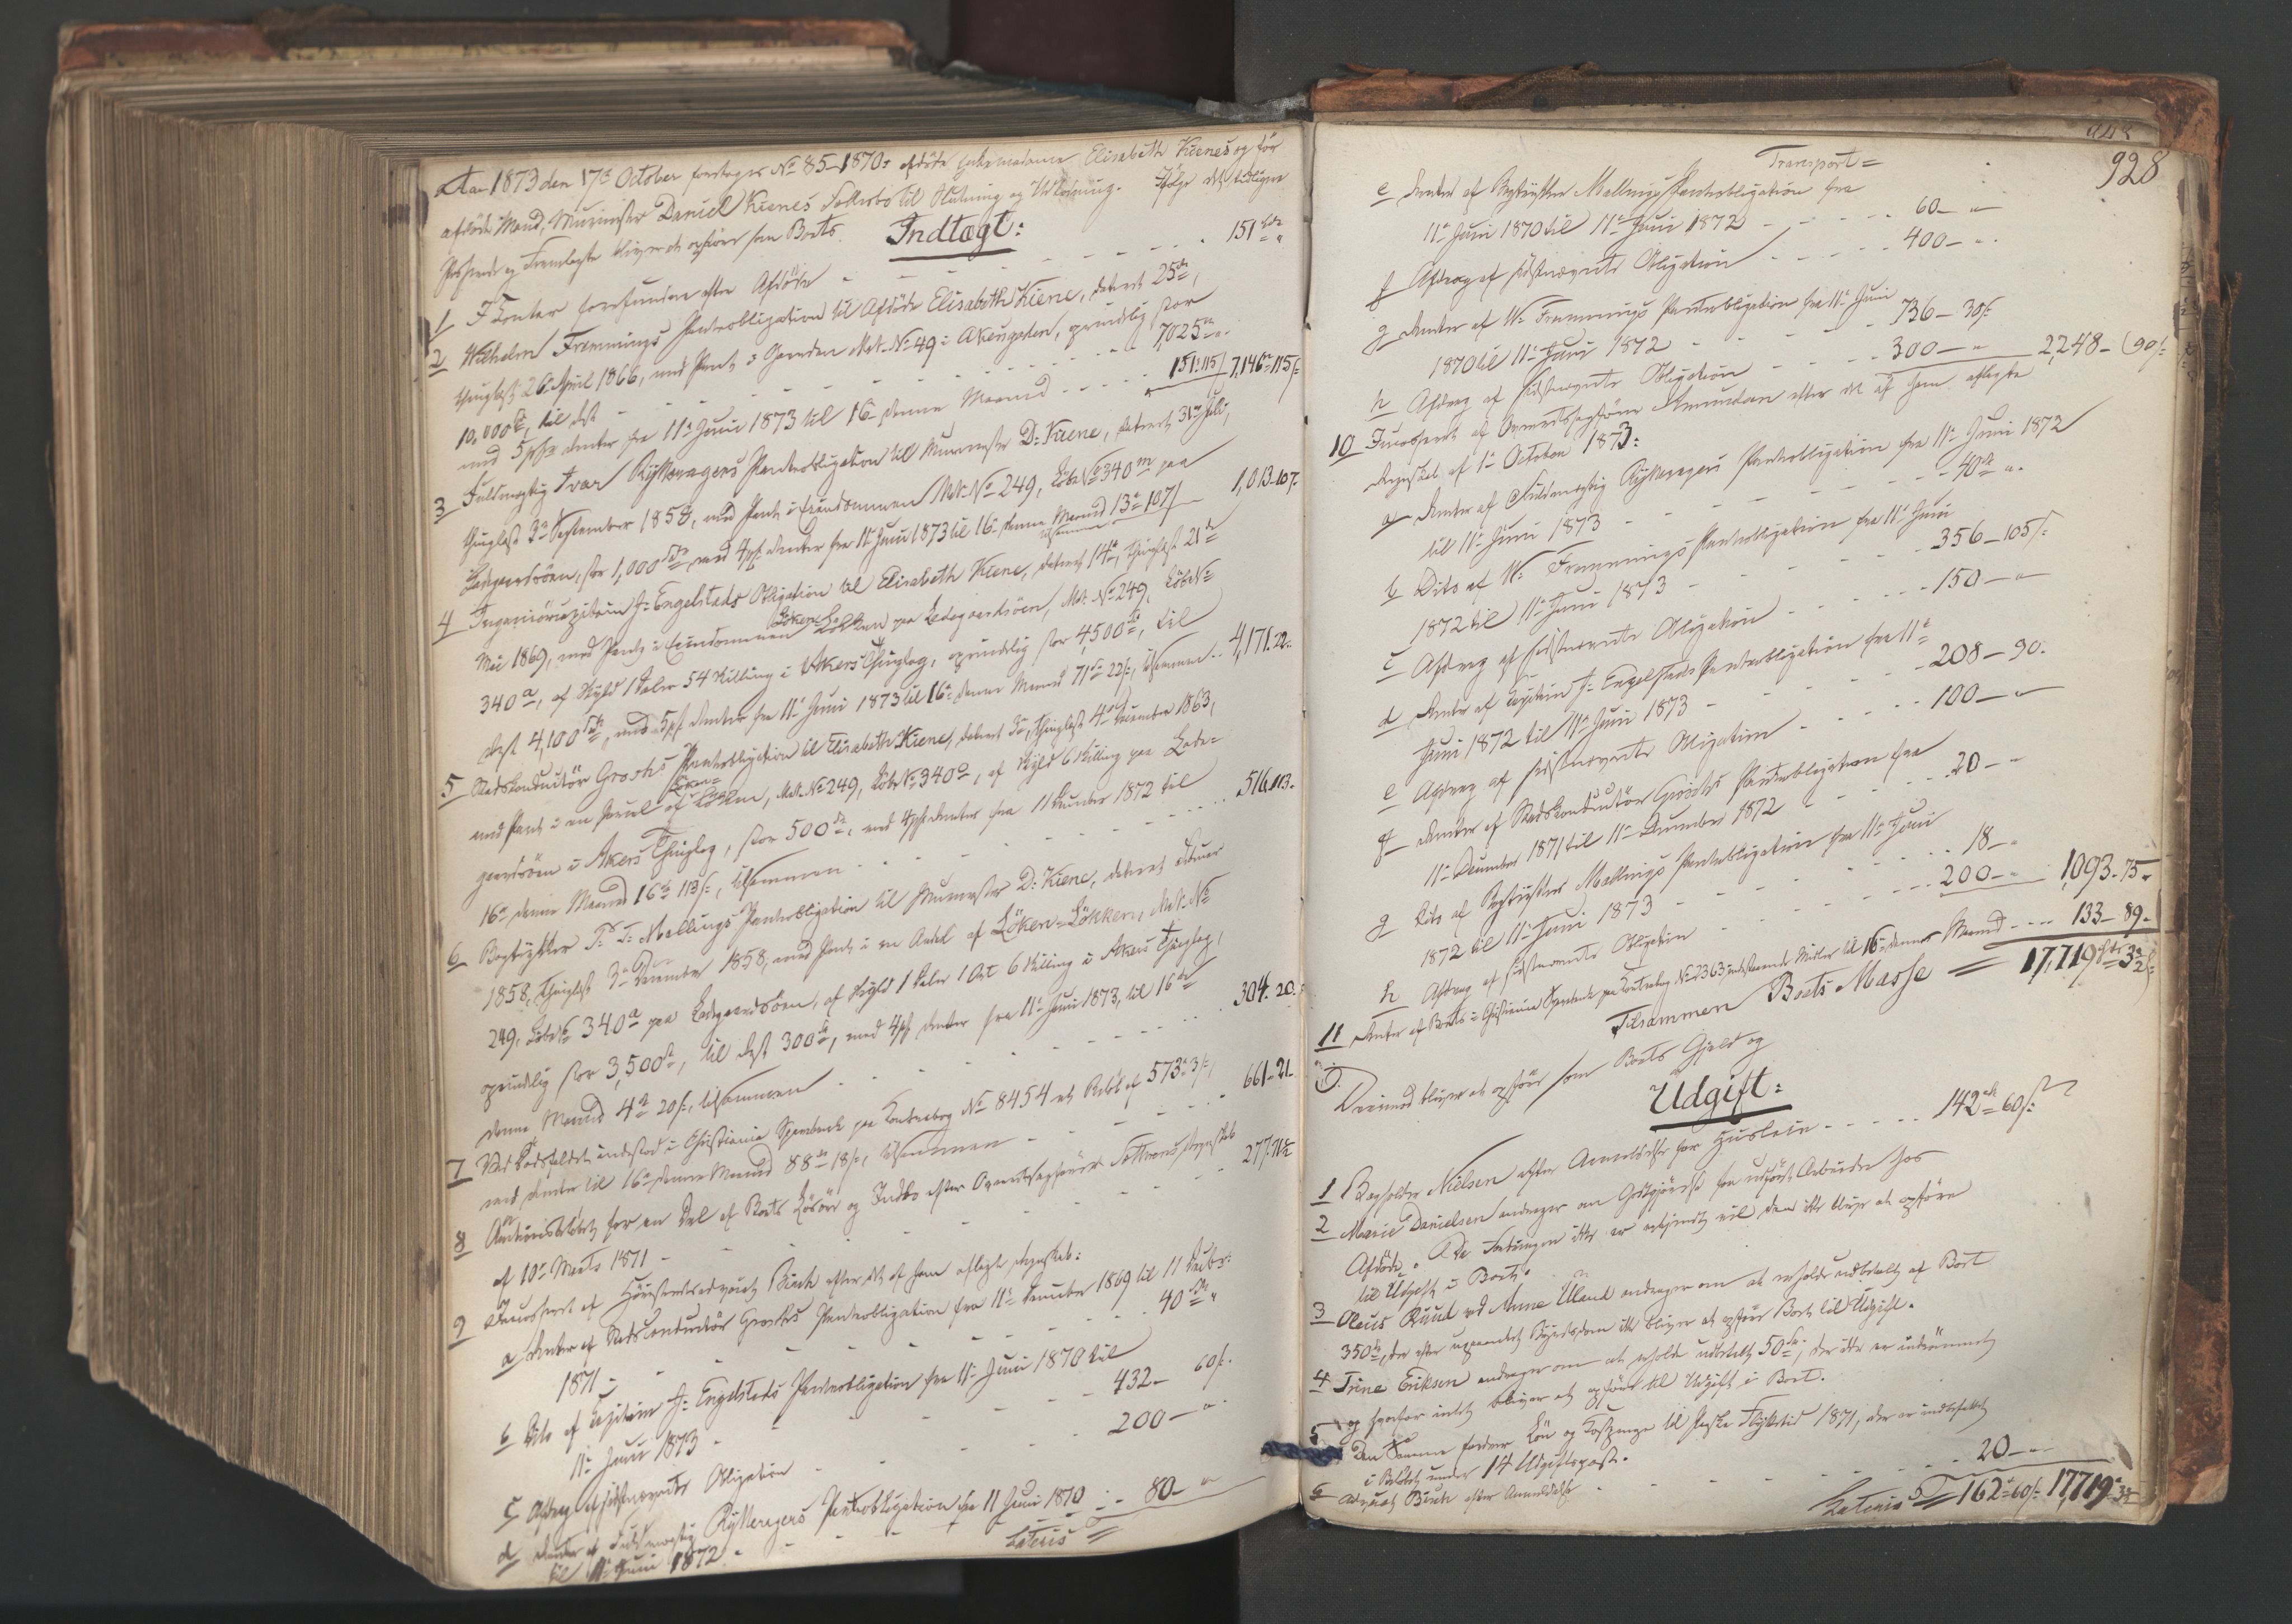 Aar 1873 den 17de October foretages No 85-1870: afdøde Enkemadame Elisabeth Kienes og før
afdøde Mand, Muurmester Daniel Kienes Fællesbo til Slutning og Udlodning. Ifølge det tidligere
Passerede og Fremlagte bliver at opføre som Boets
Indtægt:
1 I Contant forefunden efter Afdøde - - - 151 Spd "
2 Wilhelm Fremmings Panteobligation til Afdøde Elisabeth Kiene, dateret 25de,
thinglæst 26 April 1866, med Pant i Gaarden Mat. No 49 i Akersgaden, oprindelig stor
10,000 Spd, til Rest - - - 7,025 Spd "
med 5 pCt Renter fra 11te Juni 1873 til 16de denne Maaned - - - 151: 115 / 7,146 - 115 s
3 Fuldmægtig Ivar Rytteragers Panteobligation til Muurmester D: Kiene, dateret 31te Juli,
thinglæst 3die September 1858, med Pant i Eiendommen Mat. No 249, Løbe No 340 m paa
Ladegaardsøen, stor 1,000 Spd med 4 pCt Renter fra 11te Juni 1873 til 16de denne Maaned 13 - 107 / tilsammen 1,013 - 107.
4 Ingeniørcapitain J: Engelstads Obligation til Elisabeth Kiene, dateret 14de, thinglæst 21de
Mai 1869, med Pant i Eiendommen Løkken paa Ladegaardsøen, Mat. No 249, Løbe No
340 a, af Skyld 1 Daler 54 Skilling i Akers Thinglag, oprindelig stor 4,500 Spd, til
Rest 4,100 Spd, med 5 pCt Renter fra 11te Juni 1873 til 16de denne Maaned 71 - 22 s, tilsammen - - 4,171. 22.
5 Stadsconducteur Grosch's Panteobligation til Elisabeth Kiene, dateret 3die, thinglæst 4de December 1863,
med Pant i en Parcel af Løkken, Mat. No 249, Løbe No 340 o, af Skyld 6 Skilling paa Lade=
gaardsøen i Akers Thinglag, stor 500 Spd, med 4 pCt Renter fra 11 December 1872 til
16de denne Maaned 16 - 113 s, tilsammen - - - 516. 113.
6 Bogtrykker P: T: Mallings Panteobligation til Muurmester D: Kiene, dateret
1858, thinglæst 3die December 1858, med Pant i en Andel af Løken = Løkken, Mat. No
249, Løbe No 340 a paa Ladegaardsøen, af Skyld 1 Daler 1 Ort 6 Skilling i Akers Thinglag,
oprindelig stor 3,500 Spd, til Rest 300 Spd, med 4 pCt Renter fra 11te Juni 1873, til 16de
denne Maaned 4 - 20 s, tilsammen - - - 304. 20.
7 Ved Dødsfaldet indestod i Christiania Sparebank paa Contrabog No 8454 et Beløb af 573 - 3 s,
med Renter til 16de denne Maaned 88 - 18 s, tilsammen - - - 661 - 21.
8 Auctionsbeløbet for en Del af Boets Løsøre og Indbo efter Overretssagfører Regnskab
af 10de Marts 1871 - - - 277.
9 Incasseret af Høiesteretsadvocat Birch efter det af ham aflagte Regnskab:
a Renter af Stadsconducteur Grosch's Panteobligation fra 11te December 1869 til 11 Decbr.
1871 - - - 40 Spd "
b Dito af Capitain J: Engelstads Panteobligation fra 11te Juni 1870 til
11te Juni 1873 - - - 432 - 60 s.
c Afdrag af sidstnævnte Obligation - - - 200 - "
d Renter af Fuldmægtig Rytteragers Panteobligation fra 11 Juni 1870
til 11te Juni 1872 - - - 80 - "
Lateris
928
Transport =
e Renter af Bogtrykker Mallings Panteobligation fra
11te Juni 1870 til 11te Juni 1872 - - - 60 - "
f Afdrag af sidstnævnte Obligation - - - 400 - "
g Renter af W: Fremmings Panteobligation fra 11te Juni
1870 til 11te Juni 1872 - - - 736 - 30 s
h Afdrag af sidstnævnte Obligation - - - 300 - " 2,248 - 90 s.
10 Incasseret af Overretssagfører Amundsen efter det af ham aflagte
Regnskab af 1te October 1873:
a Renter af Fuldmægtig Rytteragers Panteobligation fra 11te Juni 1872
til 11te Juni 1873 - - - 40 Spd "
b Dito af W: Fremmings Panteobligation fra 11te Juni
1872 til 11te Juni 1873 - - - 356 - 105 s.
c Afdrag af sidstnævnte Obligation - - - 150 - "
d Renter af Capitain J: Engelstads Panteobligation fra 11te
Juni 1872 til 11te Juni 1873 - - - 208 - 90.
e Afdrag af sidstnævnte Obligation - - - 100 - "
f Renter af Stadsconducteur Grosch's Panteobligation fra
11te December 1871 til 11te December 1872 - - - 20 - "
g Dito af Bogtrykker Mallings Panteobligation fra 11te Juni
1872 til 11te Juni 1873 - - - 18 - "
h Afdrag af sidstnævnte Obligation - - - 200 - " 1,093 - 75
11 Renter af Boets i Christiania Sparebank paa Contrabog No 2363 indestaaende Midler til 16de denne Maaned - - - 133 - 89.
Tilsammen Boets Masse = 17,719 Spd
Derimod bliver at opføre som Boets Gjæld og
Udgift:
1 Bagholder Nielsen efter Anmeldelse for Husleie - - - 142 Spd 60 s
2 Marie Danielsen andrager om Godtgjørelse for udført Arbeide hos
Afdøde. Da Fordringen ikke er erkjendt vil den ikke blive at opføre
til Udgift i Boet.
3 Oleus Ruud ved Anne Uland andrager om at erholde udbetalt af Boet
350 Spd, der efter Skjøn bliver at opføre Boet til Udgift.
4 Trine Eriksen andrager om at erholde udbetalt 50 Spd, der ikke er indrømmet
og hvorfor intet bliver at opføre til Udgift i Boet.
5 Den Samme fordrer Løn og Kostpenge til Paaske Flyttetid 1871, der er indbefattet
i Beløbet under 14 Udgiftspost.
6 Advocat Birch efter Anmeldelse - - - 20 - "
Lateris 162 - 60 s. 17,719